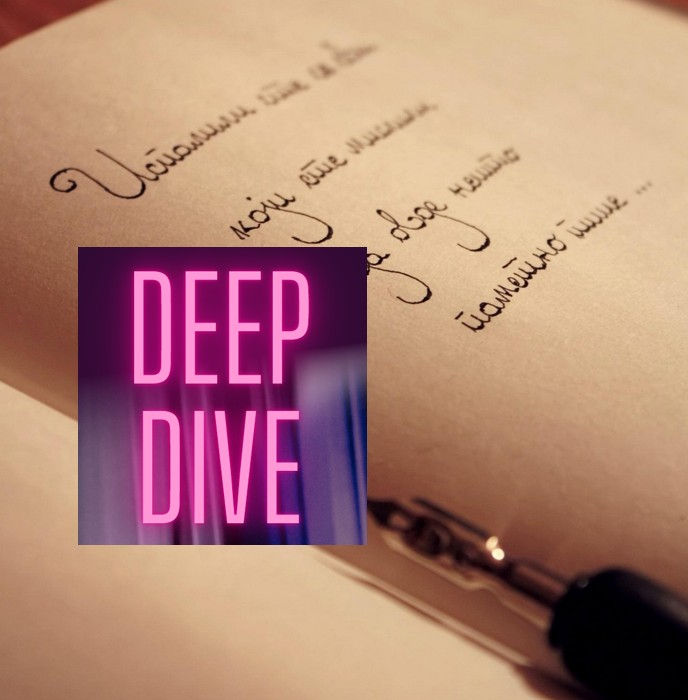 Испалили сте се
који сте мислили
да овде нешто
паметно пише ...
DEEP
DIVE